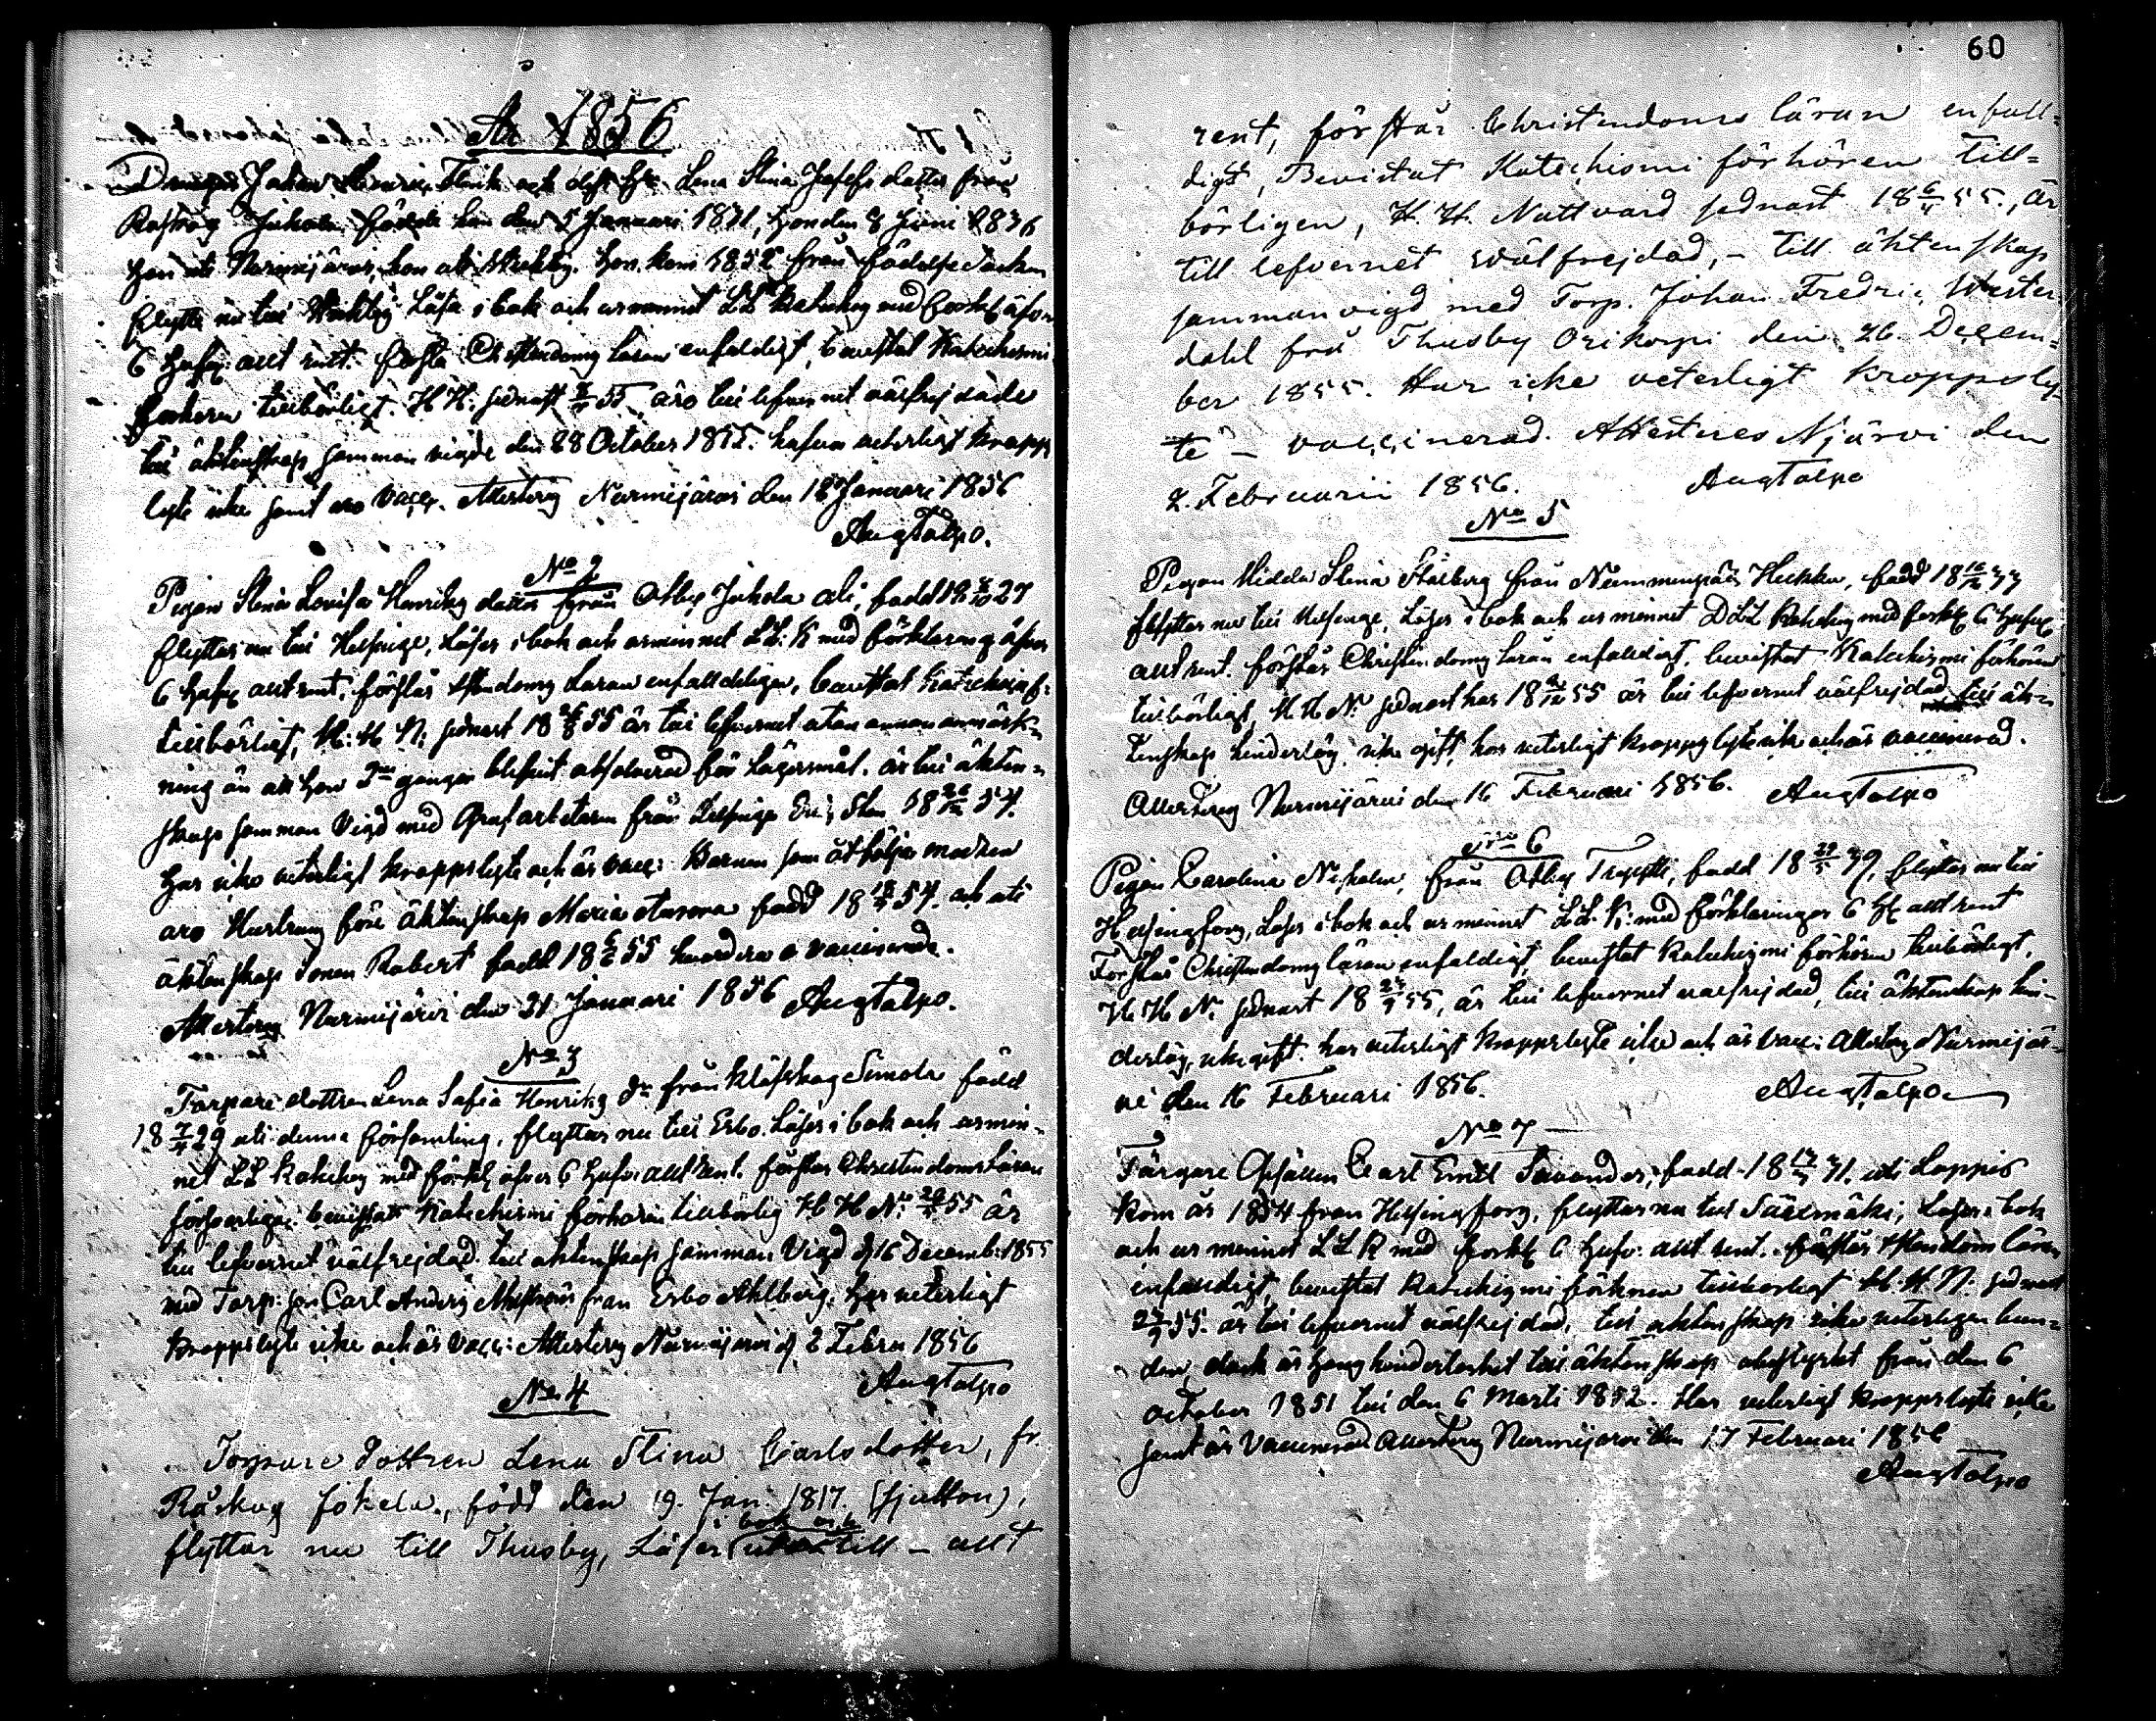 År 1856
Drengen Johan Henric Flink och dess h:u Lena Stina Josefs dotter från
Raskog Juhola födde han den 5 Januari 1831, hon den 8 Junii 1836
han uti Nurmijärvi, hon uti Wichtis. hon kom 1852 från födelse Socken
flytta nu till Wichtis Läsa i bok och ur minnet LL Kateches med förkl öfver
6 hufs: allt rent. förstå Christendoms läran enfaldigt, bevistat Katechismi
förhören tillbörligt. H H: sednast 55 äro till lefvernet välfrejdade
till äktenskap samman vigde den 28 October 1855. hafva veterligt kropps
lyte icke samt äro vacc. Attesteras Nurmijärvi den 18 Januari 1856
Aug Talpo.
No 2
Pigan Stina Lovisa Henriks dotter från Åby Juhola ali, född 18 27
flyttar nu till Helsinge, Läser i bok och ur minnet LL: K med förklaring öfver
6 hufs allt rent, förstår Xstendoms Läran enfalldeligen, bevistat Katechismi f:
tillbörligt, H: H N: sednast 18 55 är till lefvernet utan annan anmärk-
ning än att hon 2 gånger blifvit absolverad för Lägersmål. är till äkten-
skap samman Vigd med Grufarbetaren från Helsinge Eric Sten 18 54.
har icke veterligt kroppslyte och är vacc: Barnen som åtfölja modren
äro före äktenskap Maria född 18 54. och uti
äktenskap Sonen Robert född 18 55 hvardera o vaccinerade.
Attesteras Nurmijärvi den 31 Januari 1856 Aug Talpo.
No 3
Torpare dottren Lena Sofia Henriks dr från Klöfskog Simola född
18 29 uti denna församling, flyttar nu till Esbo. Läser i bok och ur min-
net LL Kateches med förkl öfver 6 hufs: allt rent. förstår Christendoms Läran
försvarligen bevistat Katechismi förhören tillbörlig H H N: 55 är
till lefvernet välfrejdad. till äktenskap samman Vigd d 16 Decemb: 1855
med Torp: son Carl Anders från Esbo Ahlberg. har veterligt
kroppslyte icke och är vacc: Attesteras Nurmijärvi d 2 Febru 1856
Aug Talpo
No 4
Torpare dottren Lena Stina Carlsdotter, fr.
Råskog Jokela, född den 19. Jan. 1817. (sjutton),
i bok och
flyttar nu till Thusby, Läser utantill – allt
60
rent, förstår Christendoms läran enfall-
digt, Bevistat Katechismi förhören till-
börligen, H. H. Nattvard sednast 18 55., är
till lefvernet välfrejdad, – till äktenskap
sammanvigd med Torp. Johan Fredric Wester-
dahl frå Thusby Orikorpi den 26. Decem-
ber 1855. Har icke veterligt kroppsly-
te – vaccinerad. Attesteres Njärvi den
2. Februarii 1856. Aug Talpo
No 5
Pigan Hedda Stina Stålberg från Nummenpää Heikka, född 18 33
flyttar nu till Helsinge, Läser i bok och ur minnet LL Kateches med förkl 6 hufs
allt rent. förstår Christendoms läran enfaldigt. bevistat Katechismi förhören
tillbörligt, H H N: sednast har 18 55 är till lefvernet välfrejdad till äk-
tenskap hinderlös icke gift, har veterligt kroppslyte icke och är vaccinerad.
Attesteras Nurmijärvi den 16 Februari 1856. Aug Talpo
No 6
Pigan Carolina från Åby född 18 39, flyttar nu till
Helsingfors, Läser i bok och ur minnet LL. K: med förklaringar 6 hf allt rent
Förstår Christendoms läran enfaldigt, bevistat Katechismi förhören tillbörligt,
H H N. sednast 18 55, är till lefvernet välfrejdad, till äktenskap hin-
derlös, icke gift. har veterligt kroppslyte icke och är vacc: Attesteras Nurmijär-
vi den 16 Februari 1856. Aug Talpo
No 7
Färgare Gesällen Carl Emil Savander, född 18 31. uti Loppis
kom år 1854 från Helsingfors, flyttar nu till Sääxmäki, Läser i bok
och ur minnet LL K med förkl 6 hufv: allt rent. förstår Xstendoms läran
enfaldigt, bevistat Katechismi förhören tillbörligt H. H. N: sednast
55. är till lefvernet välfrejdad, till äktenskap icke veterligen bun-
den, dock är hans hinderlöshet till äktenskap obestyrkt från den 6
October 1851 till den 6 Martii 1852. Har veterligt kroppslyte icke
samt är Vaccinerad Attesteras Nurmijärvi den 17 Februari 1856
Aug Talpo